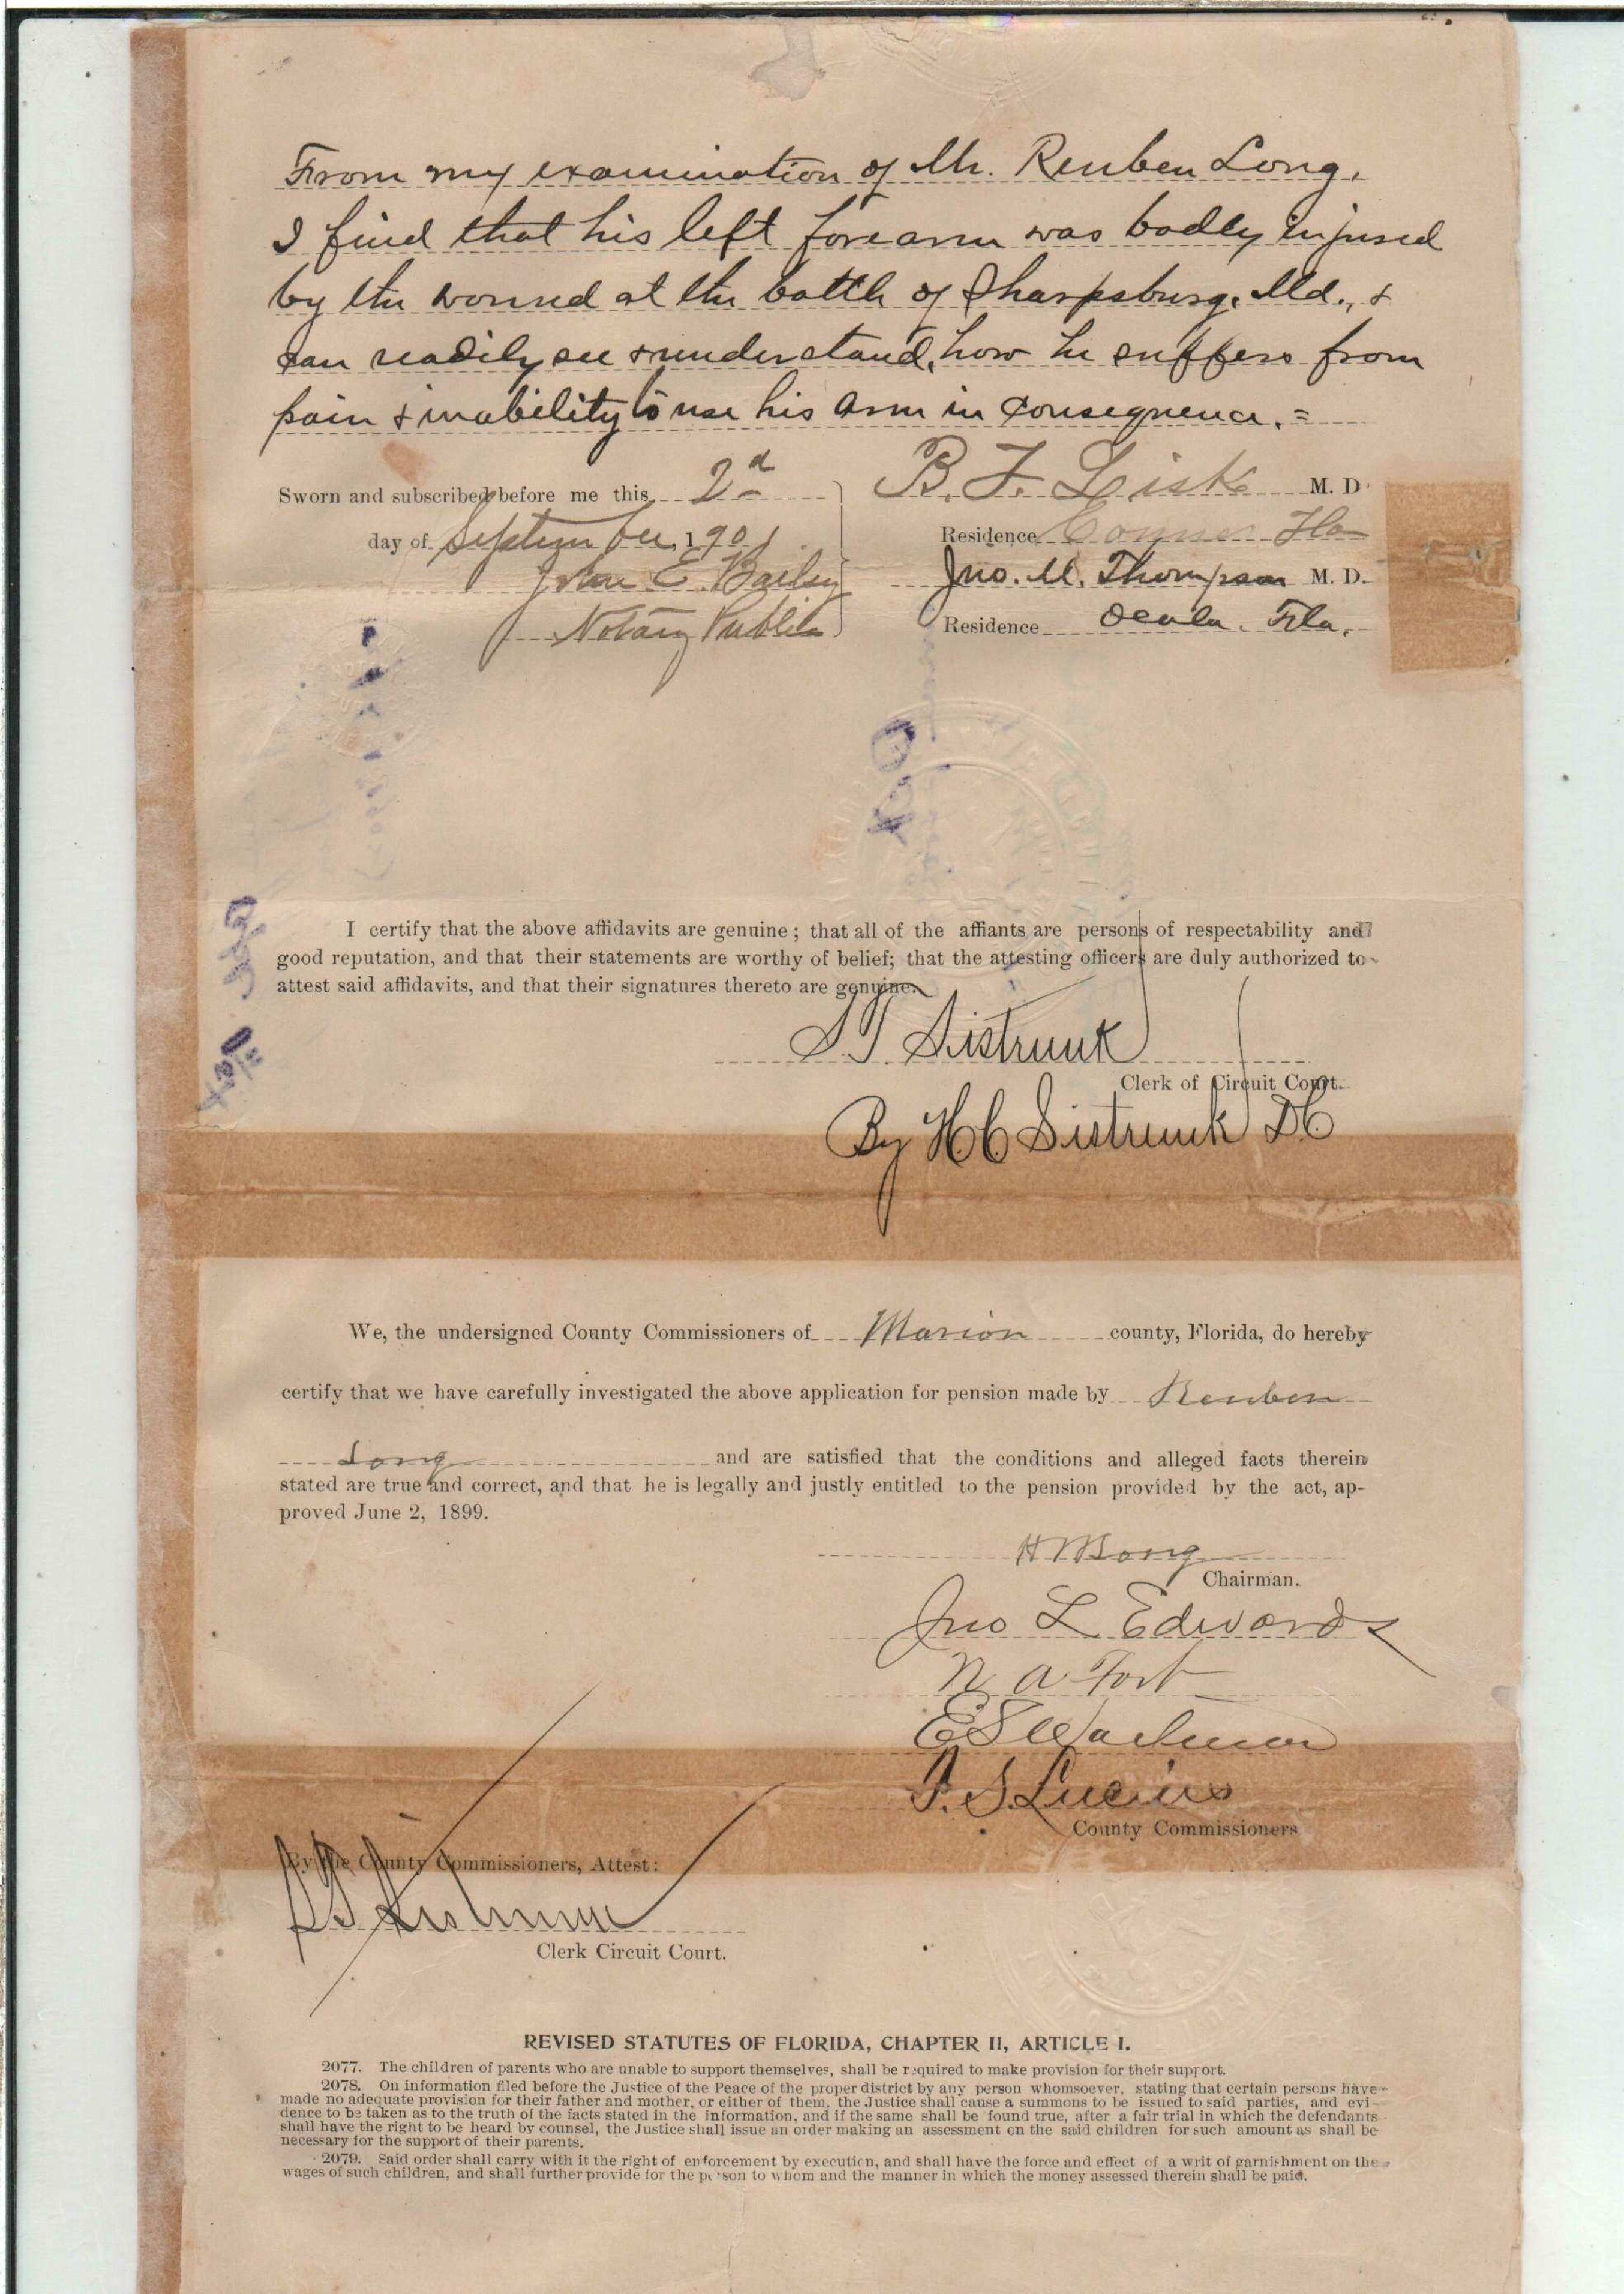 From my examination of Mr. Reuben Long,
I find that his left forearm was badly injured
by the wound at the battle of Sharpsburg, Md., &
can readily see & understand, how he suffers from
pain & inability to use his arm in consequence. =
Sworn and subscribed before me this 2d
day of September 1901
John E. Bailey
Notary Public
B. F. Lisk M. D.
Residence Conner Fla
Jno. M. Thompson M. D.
Residence Ocala, Fla.
I certify that the above affidavits are genuine; that all of the affiants are persons of respectability and
good reputation, and that their statements are worthy of belief; that the attesting officers are duly authorized to
attest said affidavits, and that their signatures thereto are genuine.
S T Sistrunk
Clerk of Circuit Court.
By H C Sistrunk D C
We, the undersigned County Commissioners of Marion county, Florida, do hereby
certify that we have carefully investigated the above application for pension made by Reuben
Long and are satisfied that the conditions and alleged facts therein
stated are true and correct, and that he is legally and justly entitled to the pension provided by the act, ap-
proved June 2, 1899.
Chairman.
Jno L Edwards
N A Fort
E S
Lucius
County Commissioners
By the County Commissioners, Attest:
S T Sistrunk
Clerk Circuit Court.
REVISED STATUTES OF FLORIDA, CHAPTER II, ARTICLE I.
2077. The children of parents who are unable to support themselves, shall be required to make provision for their support.
2078. On information filed before the Justice of the Peace of the proper district by any person whomsoever, stating that certain persons have
made no adequate provision for their father and mother, or either of them, the Justice shall cause a summons to be issued to said parties, and evi-
dence to be taken as to the truth of the facts stated in the information, and if the same shall be found true, after a fair trial in which the defendants
shall have the right to be heard by counsel, the Justice shall issue an order making an assessment on the said children for such amount as shall be
necessary for the support of their parents.
2079. Said order shall carry with it the right of enforcement by execution, and shall have the force and effect of a writ of garnishment on the
wages of such children, and shall further provide for the person to whom and the manner in which the money assessed therein shall be paid.